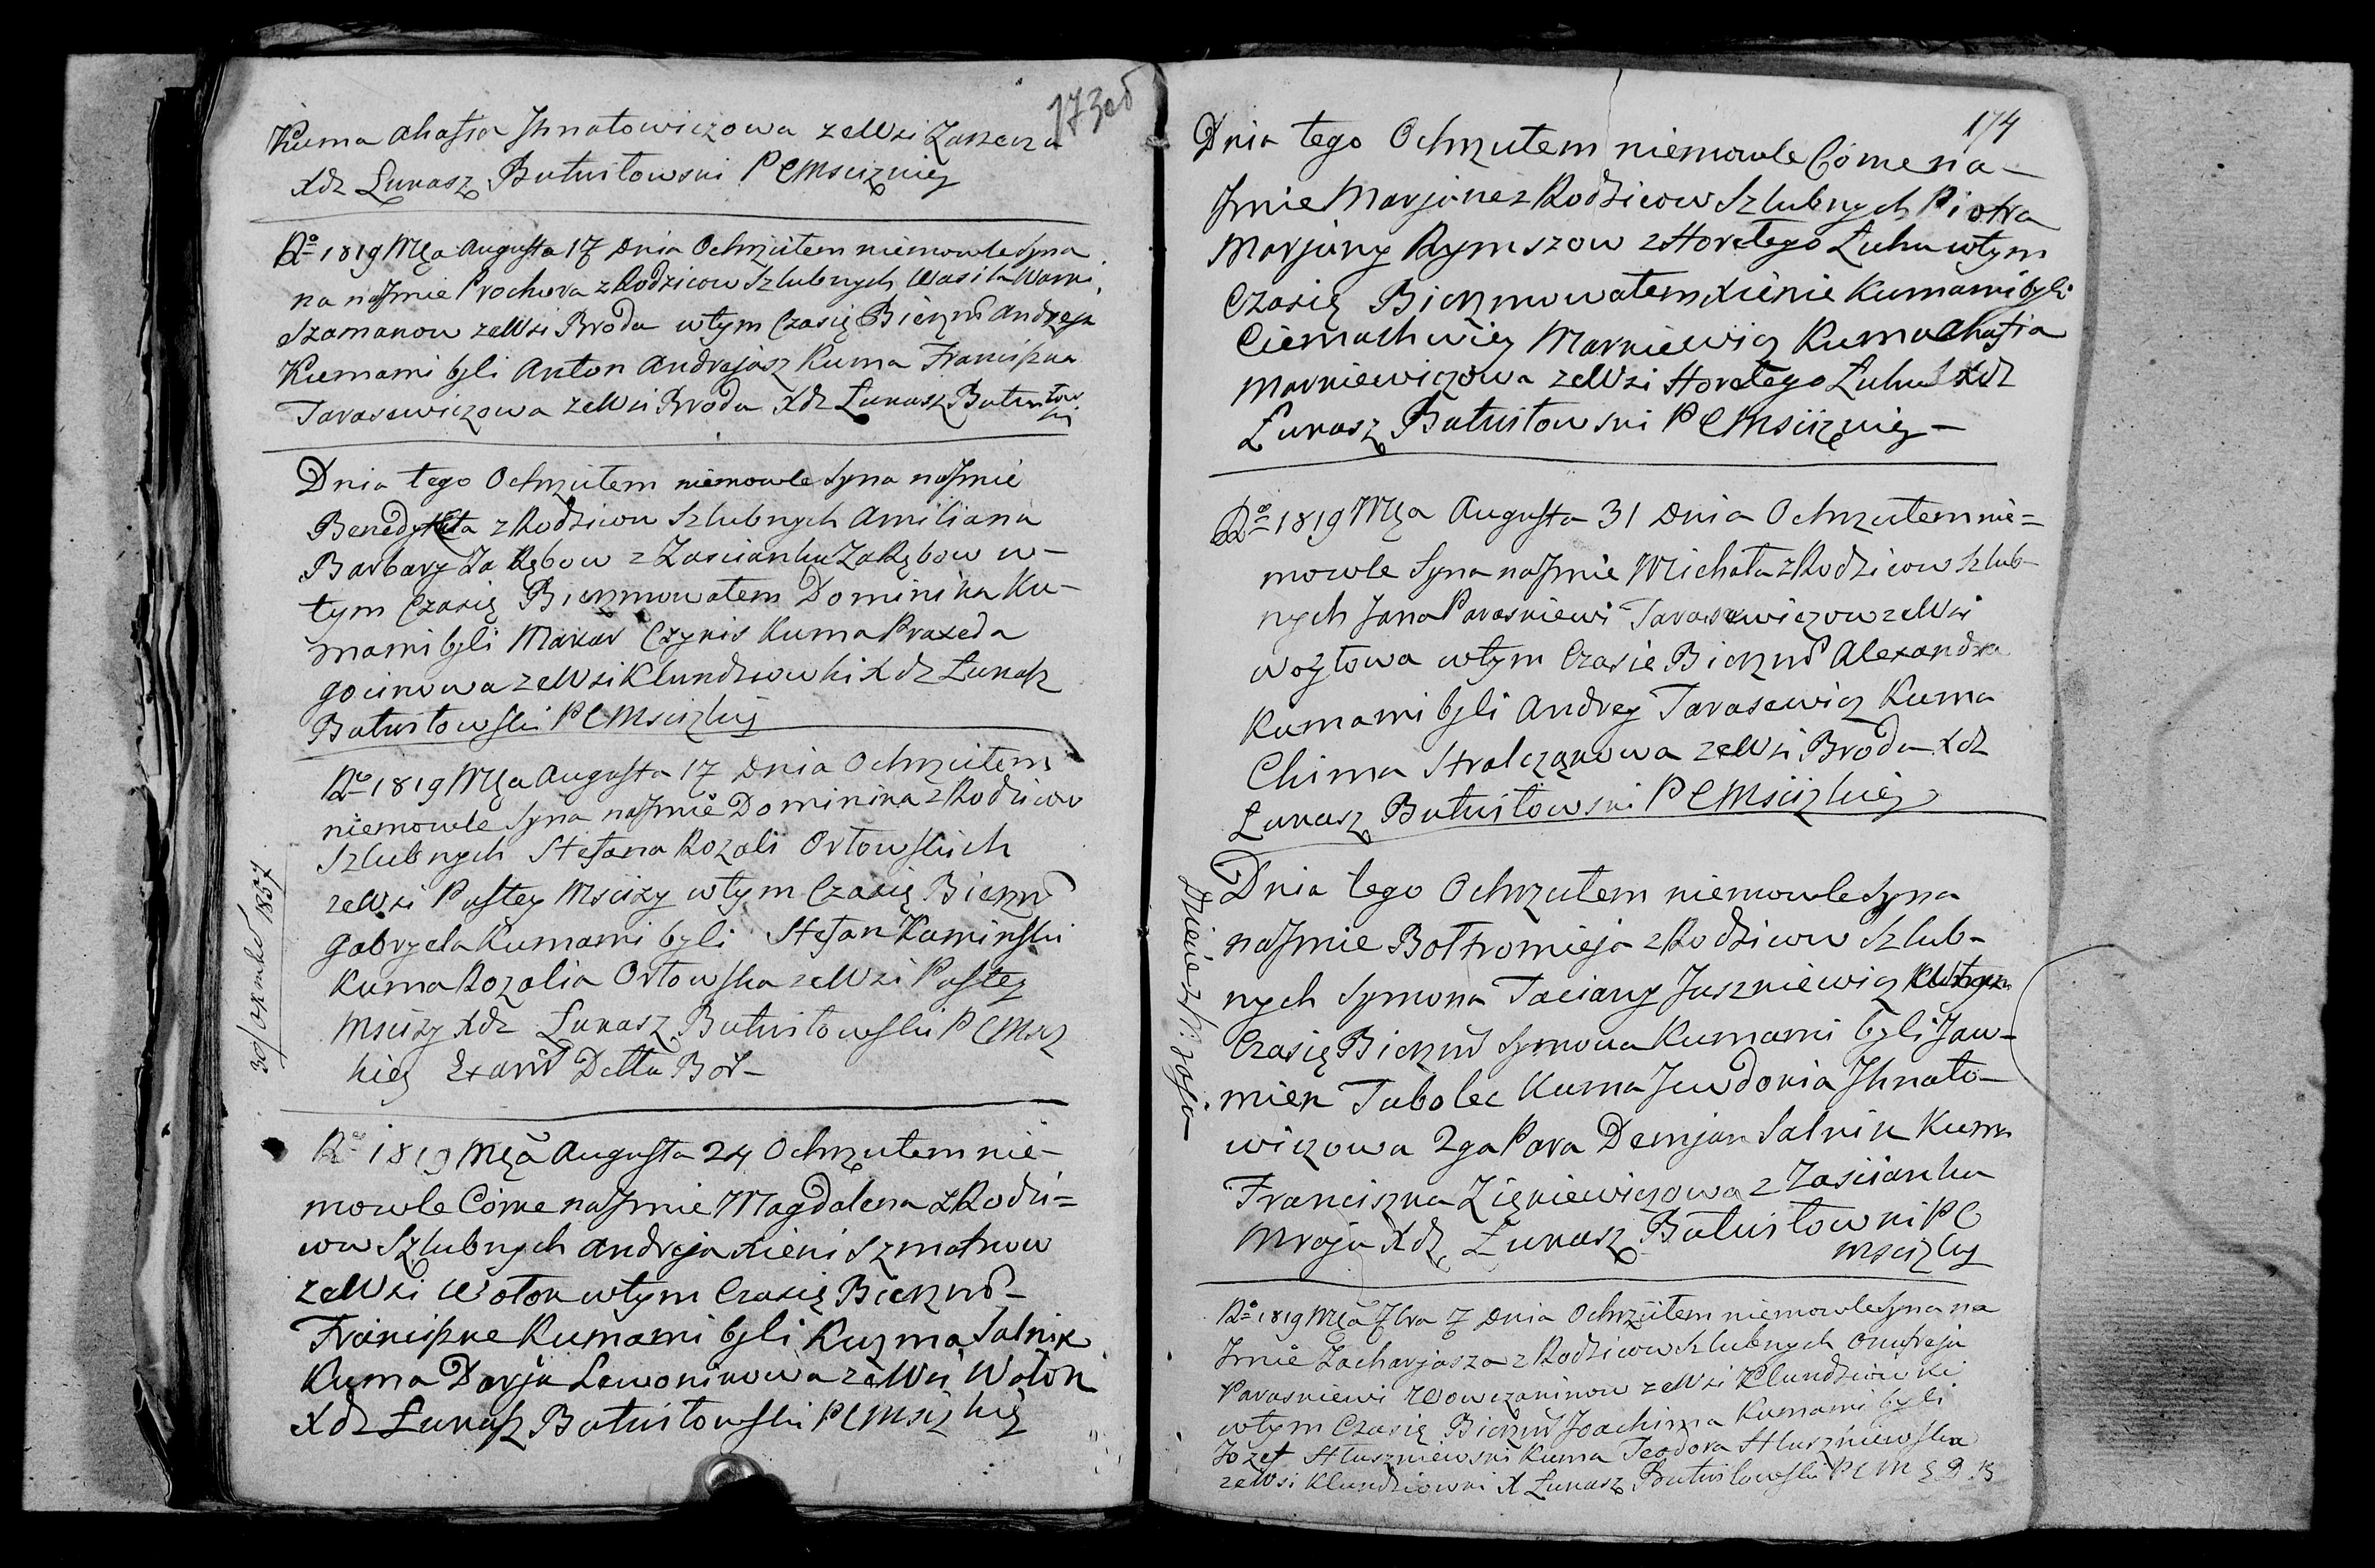 173 об
Kuma Ahafia Ihnatowiczowa ze Wsi Zarzecza
Xdz Łukasz Bututowski P C Mscizkiey
Rº 1819 Mca Augusta 17 Dnia Ochrzciłem niemowle Syna
na na Imie Prochora z Rodzicow Szlubnych Wasila Warki
Szamanow ze Wsi Broda wtym Czasię Bierzm Andreja
Kumami byli Anton Andrejasz Kuma Franciszka
Tarasewiczowa ze Wsi Broda Xdz Łukasz Bututow
ski
Dnia tego Ochrzciłem niemowle Syna na Imie
Benedykta z Rodzicow Szlubnych Amiliana
Barbary Za Rębow z Zascianku Za Rębow w-
tym Czasię Bierzmowałem Dominika Ku-
mami byli Makar Czyris Kuma Praxeda
ze Wsi Klundziowki Xdz Łukasz
Bututowski P C Mscizkiey
Rº 1819 Mca Augusta 17 Dnia Ochrzciłem
niemowle Syna na Imie Dominika z Rodzicow
Szlubnych Stefana Rozali Orłowskich
ze Wsi Pustey Mscizy wtym Czasię Bierzm
Gabryela Kumami byli Stefan Kaminski
Kuma Rozalia Orłowska ze Wsi Pustey
Mscizy Xdz Łukasz Bututowski P C Msciz
kiey
1857
Rº 1819 Mca Augusta 24 Ochrzciłem nie-
mowle Córke na Imie Magdalena z Rodzi=
cow Szlubnych Andreja Xieni Szmatkow
ze Wsi Wołok wtym Czasię Bierzm-
Franciszke Kumami byli Kuzma Salnik
Kuma Darja Lewonikowa ze Wsi Wołok
Xdz Łukasz Bututowski P C Mscizkiey
174
Dnia tego Ochrzciłem niemowle Córke na-
Imie Marjane z Rodzicow Szlubnych Piotra
Marjany Rymszow z Horełego Łuhu wtym
Czasię Bierzmowałem Xienie Kumami byli
Markiewicz Kuma Ahafia
Markiewiczowa ze Wsi Horełego Łuhu Xdz
Łukasz Bututowski P C Mscizkiey-
Rº 1819 Mca Augusta 31 Dnia Ochrzciłem nie=
mowle Syna na Imie Michała z Rodzicow Szlub-
nych Jana Paraskiewi Tarasewiczow ze Wsi
Woytowa wtym Czasie Bierzm Alexandra
Kumami byli Andrey Tarasewicz Kuma
Chima Stralczonowa ze Wsi Broda Xdz
Łukasz Bututowski P C Mscizkiey
Dnia tego Ochrzciłem niemowle Syna
na Imie Bołtromieja z Rodzicow Szlub-
nych Symona Taciany Juszkiewicz
Czasię Bierzm Symona Kumami byli Jaw-
mien Tabolec Kuma Jewdokia Ihnato-
wiczowa 2ga Para Demjan Salnik Kuma
Franciszka Zięniewiczowa z Zascianku
Mraja Xdz Łukasz Bututowski P C
Mscizkiey
Rº 1819 Mca 7bra 7 Dnia Ochrzciłem niemowle Syna na
Imie Zacharjasza z Rodzicow Szlubnych Onufreja
Paraskiewi ze Wsi Klundziowki
wtym Czasię Bierzm Joachima Kumami byli
Jozef Hłuszniewski Kuma Teodora Hłuszniewska
ze Wsi Klundziowki X Łukasz Bututowski P C M